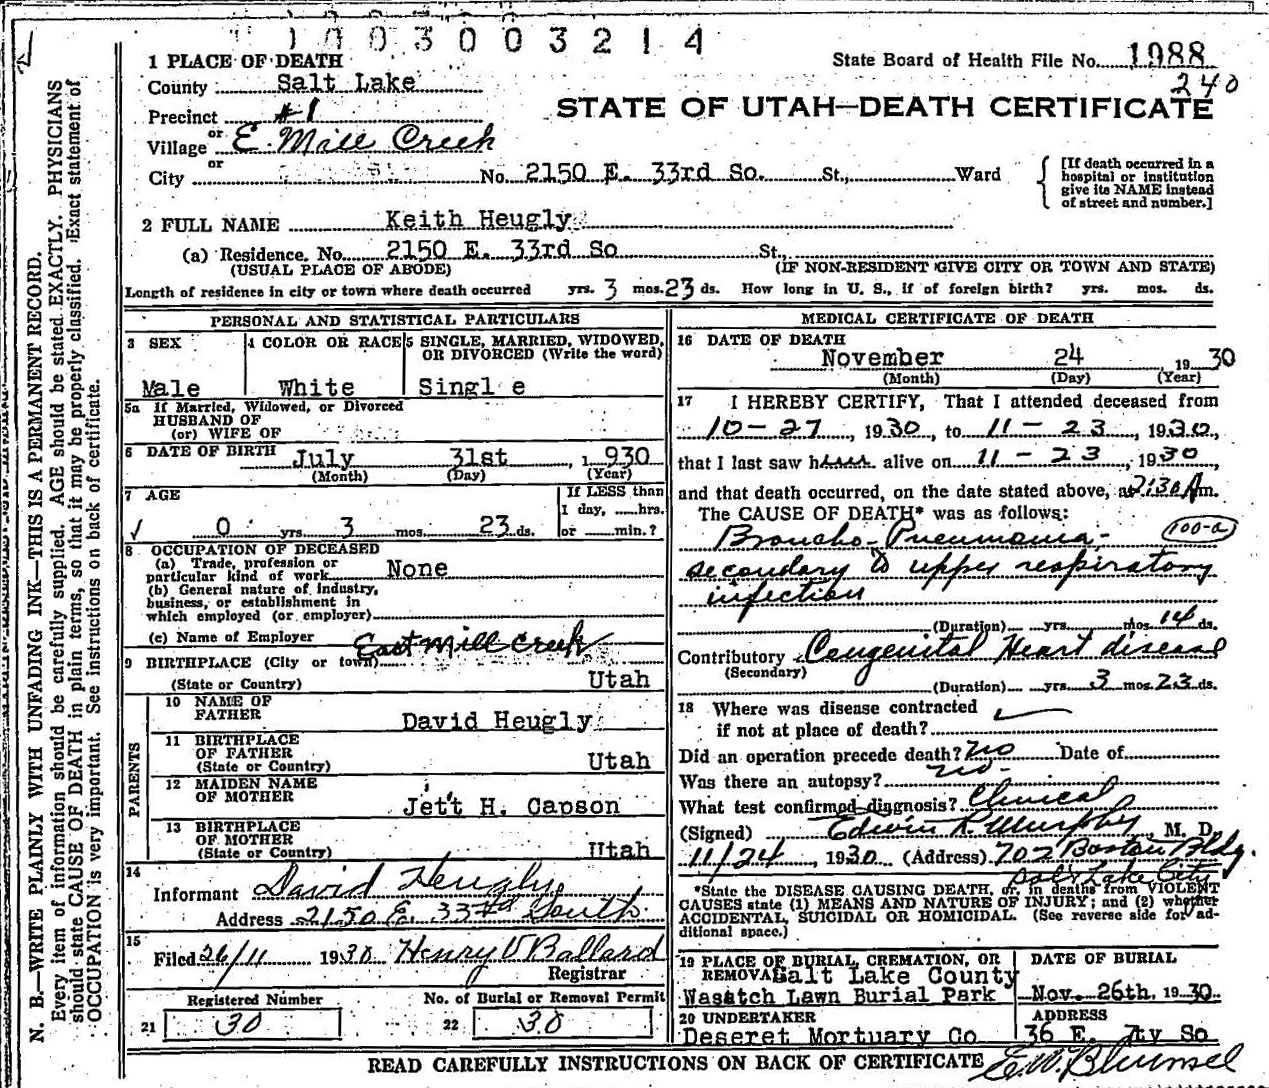 1003003214
State Board of Health File No. 1988
240
1 PLACE OF DEATH
County Salt Lake
STATE OF UTAH—DEATH CERTIFICATE
Precinct #1
or
Village E. Mill Creek
or
City No. 2150 E. 33rd So. St., Ward
[If death occurred in a
hospital or institution
give its NAME instead
of street and number.]
2 FULL NAME Keith Heugly
(a) Residence. No. 2150 E. 33rd So St.,
(USUAL PLACE OF ABODE) (IF NON-RESIDENT GIVE CITY OR TOWN AND STATE)
Length of residence in city or town where death occurred yrs. 3 mos. 23 ds. How long in U. S., if of foreign birth? yrs. mos. ds.
PERSONAL AND STATISTICAL PARTICULARS
3 SEX
Male
4 COLOR OR RACE
White
5 SINGLE, MARRIED, WIDOWED,
OR DIVORCED (Write the word)
Singl e
5a If Married, Widowed, or Divorced
HUSBAND OF
(or) WIFE OF
6 DATE OF BIRTH July 31st , 1930
(Month) (Day) (Year)
7 AGE
0 yrs. 3 mos. 23 ds.
If LESS than
1 day, ......hrs.
or ......min.?
8 OCCUPATION OF DECEASED
(a) Trade, profession or
particular kind of work None
(b) General nature of industry,
business, or establishment in
which employed (or employer)
(c) Name of Employer
East Mill Creek
9 BIRTHPLACE (City or town)
(State or Country) Utah
PARENTS
10 NAME OF
FATHER David Heugly
11 BIRTHPLACE
OF FATHER
(State or Country) Utah
12 MAIDEN NAME
OF MOTHER Jett H. Capson
13 BIRTHPLACE
OF MOTHER
(State or Country) Utah
14
Informant David Heugly
Address 2150 E. 33rd South
15
Filed 26/11 1930 Henry V Ballard
Registrar
Registered Number
21 30
No. of Burial or Removal Permit
22 30
MEDICAL CERTIFICATE OF DEATH
16 DATE OF DEATH
November 24 1930
(Month) (Day) (Year)
17 I HEREBY CERTIFY, That I attended deceased from
10-27, 1930, to 11-23, 1930,
that I last saw him alive on 11-23, 1930
and that death occurred, on the date stated above, at 2:30 A m.
The CAUSE OF DEATH* was as follows:
100-a
Broncho-Pneumonia-
secondary to upper respiratory
infection
(Duration) yrs. mos. 14 ds.
Contributory Congenital Heart disease
(Secondary)
(Duration) yrs. 3 mos. 23 ds.
18 Where was disease contracted
if not at place of death?
Did an operation precede death? No Date of
Was there an autopsy? no.
What test confirmed diagnosis? Clinical
(Signed) Edwin R. Murphy, M. D.
11/24, 1930 (Address) 702 Boston Bldg.
Salt Lake City
*State the DISEASE CAUSING DEATH, or, in deaths from VIOLENT
CAUSES state (1) MEANS AND NATURE OF INJURY; and (2) whether
ACCIDENTAL, SUICIDAL OR HOMICIDAL. (See reverse side for ad-
ditional space.)
19 PLACE OF BURIAL, CREMATION, OR
REMOVAL Salt Lake County
Wasatch Lawn Burial Park
DATE OF BURIAL
Nov. 26th, 1930
20 UNDERTAKER
Deseret Mortuary Co
ADDRESS
36 E. 7ty So
READ CAREFULLY INSTRUCTIONS ON BACK OF CERTIFICATE
N. B.—WRITE PLAINLY WITH UNFADING INK—THIS IS A PERMANENT RECORD.
Every item of information should be carefully supplied. AGE should be stated EXACTLY. PHYSICIANS
should state CAUSE OF DEATH in plain terms, so that it may be properly classified. Exact statement of
OCCUPATION is very important. See instructions on back of certificate.